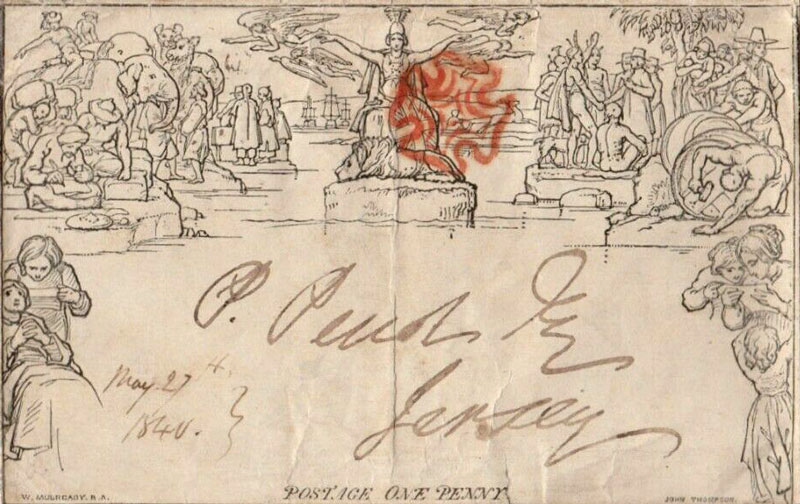 P. Perrot Esq
Jersey
May 27th
1840.
POSTAGE ONE PENNY
W. MULREADY. R.A.
JOHN THOMPSON.